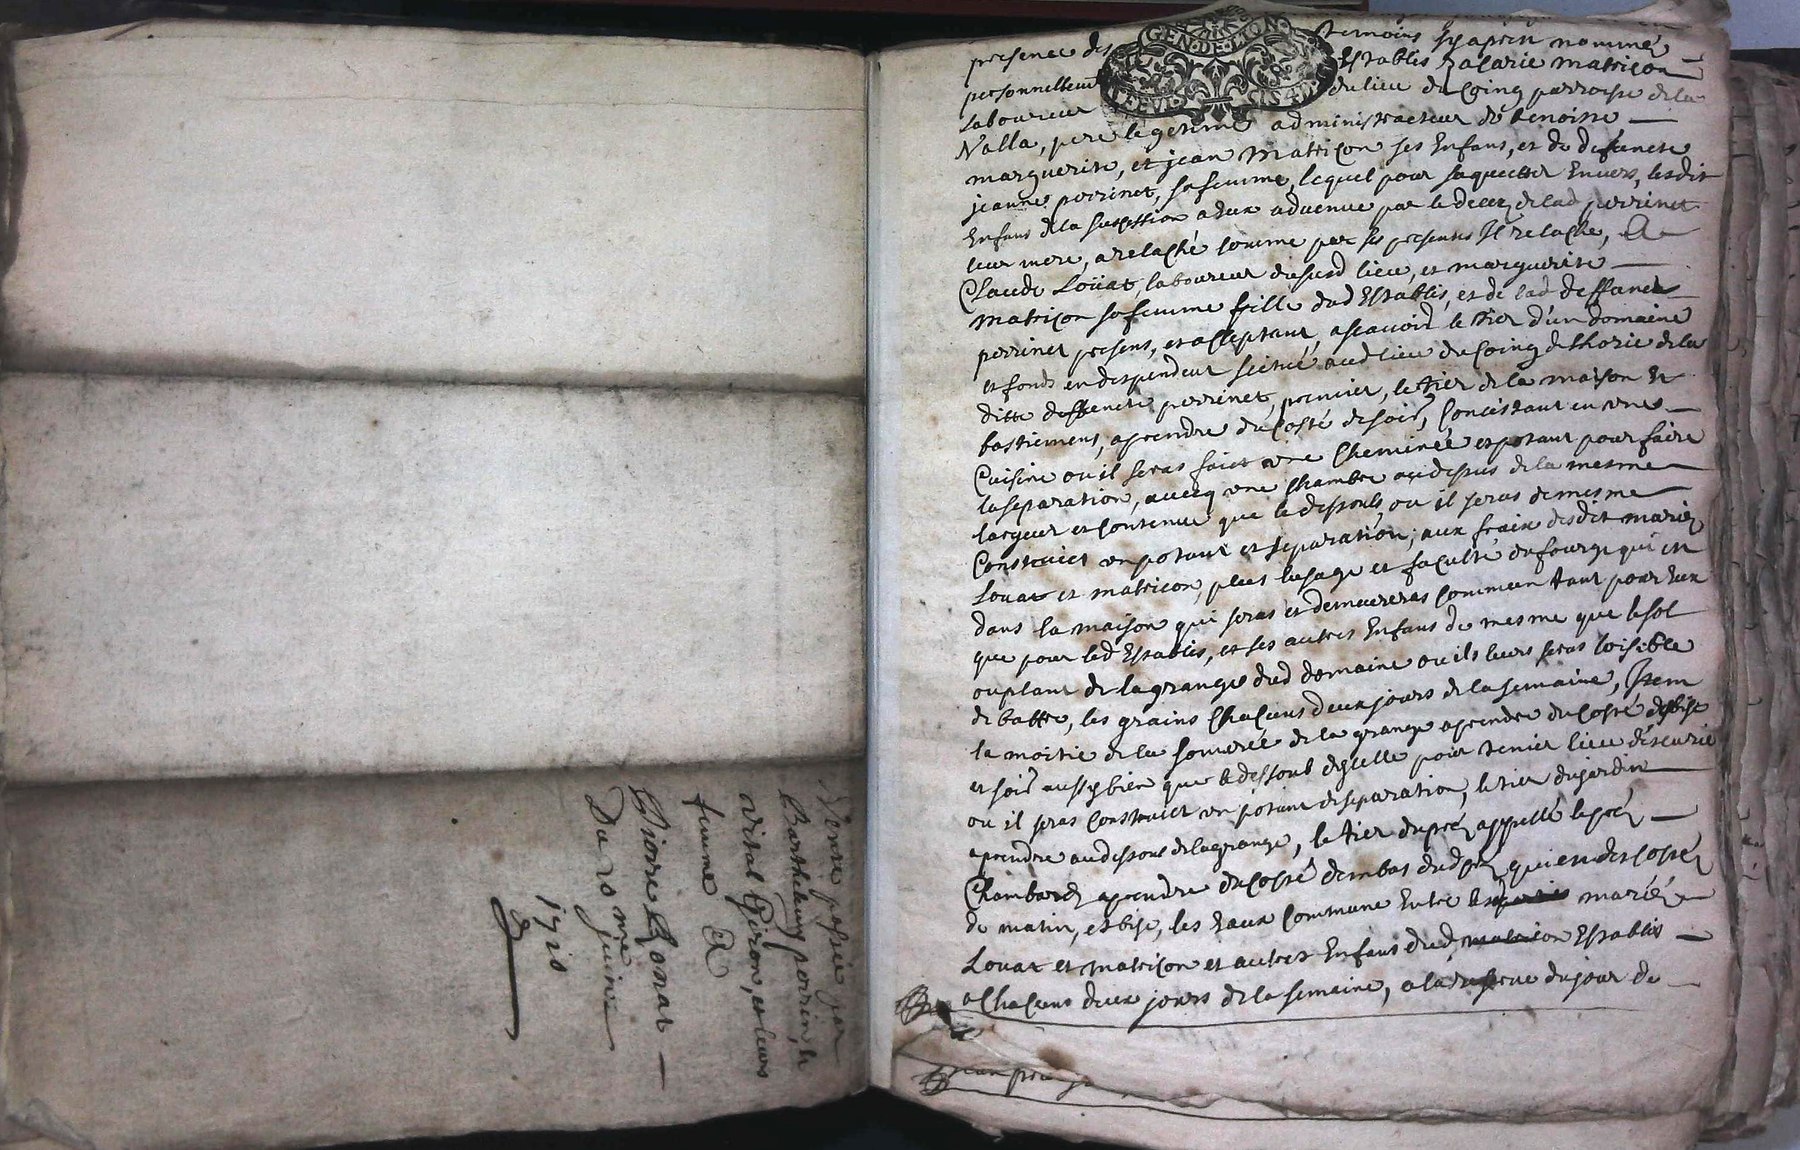 Vente passée par
Barthelemy perrin, et
vital Giron, et leurs
femme A
Pierre Bonat
Du 20 me juin
1710
GEN·DE·LION
presence des temoins sy apres nommés
personnellement Establis Zacarie matricon
Laboureur du lieu du Coing parroisse de la
Valla, pere legetime administrateur de benoiste
marguerite, et jean Matricon ses Enfans, et de deffuncte
jeanne perrinet, sa femme, lequel pour saquitter Envers, lesdit
Enfans de la sucession a Eux advenue par le decez de lad perrinet
leur mere, a relaché comme par ses presentes Il relache, A
Claude Loüat, laboureur dususd lieu, et marguerite
Matricon sa femme fille dud Establis, et de lad deffuncte
perrinet presens, et acceptant, ascavoir le tier d'un domaine
et fonds en despendent scitué aud lieu du Coing de lhoirie de la
ditte deffuncte perrinet premier, le tier de la maison et
bastiement, aprendre du Costé de soir, Concistant en une
Cuisine ou il seras faict une Cheminée et potant pour faire
la separation, avecq une Chambre au dessus de la mesme
largeur et Contenue que le dessoubs, ou il seras de mesme
Construict un potant et separation, aux fraix desdit mariez
Louat et matricon, plus lusage et faculté du fourt qui est
dans la maison qui seras et demeureras Commun tant pour Eux
que pour led Establis, et ses autres Enfans de mesme que le sol
ou plant de la grange dud domaine ou ils leurs seras loisible
de battre, les grains Chacuns deux jours de la semaine, Item
la moitié de la de la grange aprendre du Costé de bise
et soir aussy bien que le dessoub dicelle pour tenir lieu descurie
ou il seras Construict un potant et separation, le tier du jardin
aprendre au dessous de la grange, le tier du prez appellé le prez
Chambard aprendre du Costé dembas dudprez qui est des Costez
de matin, et bise, les Eaux Commune Entre les mariéz
Louat et matricon et autres Enfans dud Establis
a Chacuns deux jours de la semaine, a la reserve du jour de